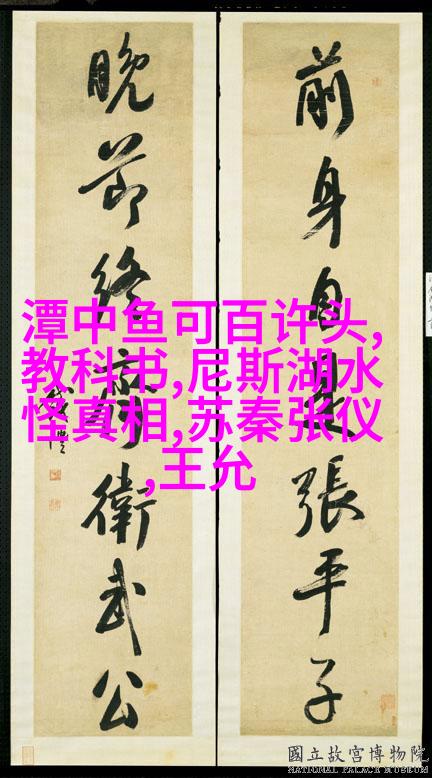 前身自是張平子
晚節終齊衛武公
錢灃
潭中鱼可百许头,
教科书,尼斯湖水
怪真相,苏秦张仪
,王允
國立故宮博物院
NATIONAL PALACE MUSEUM